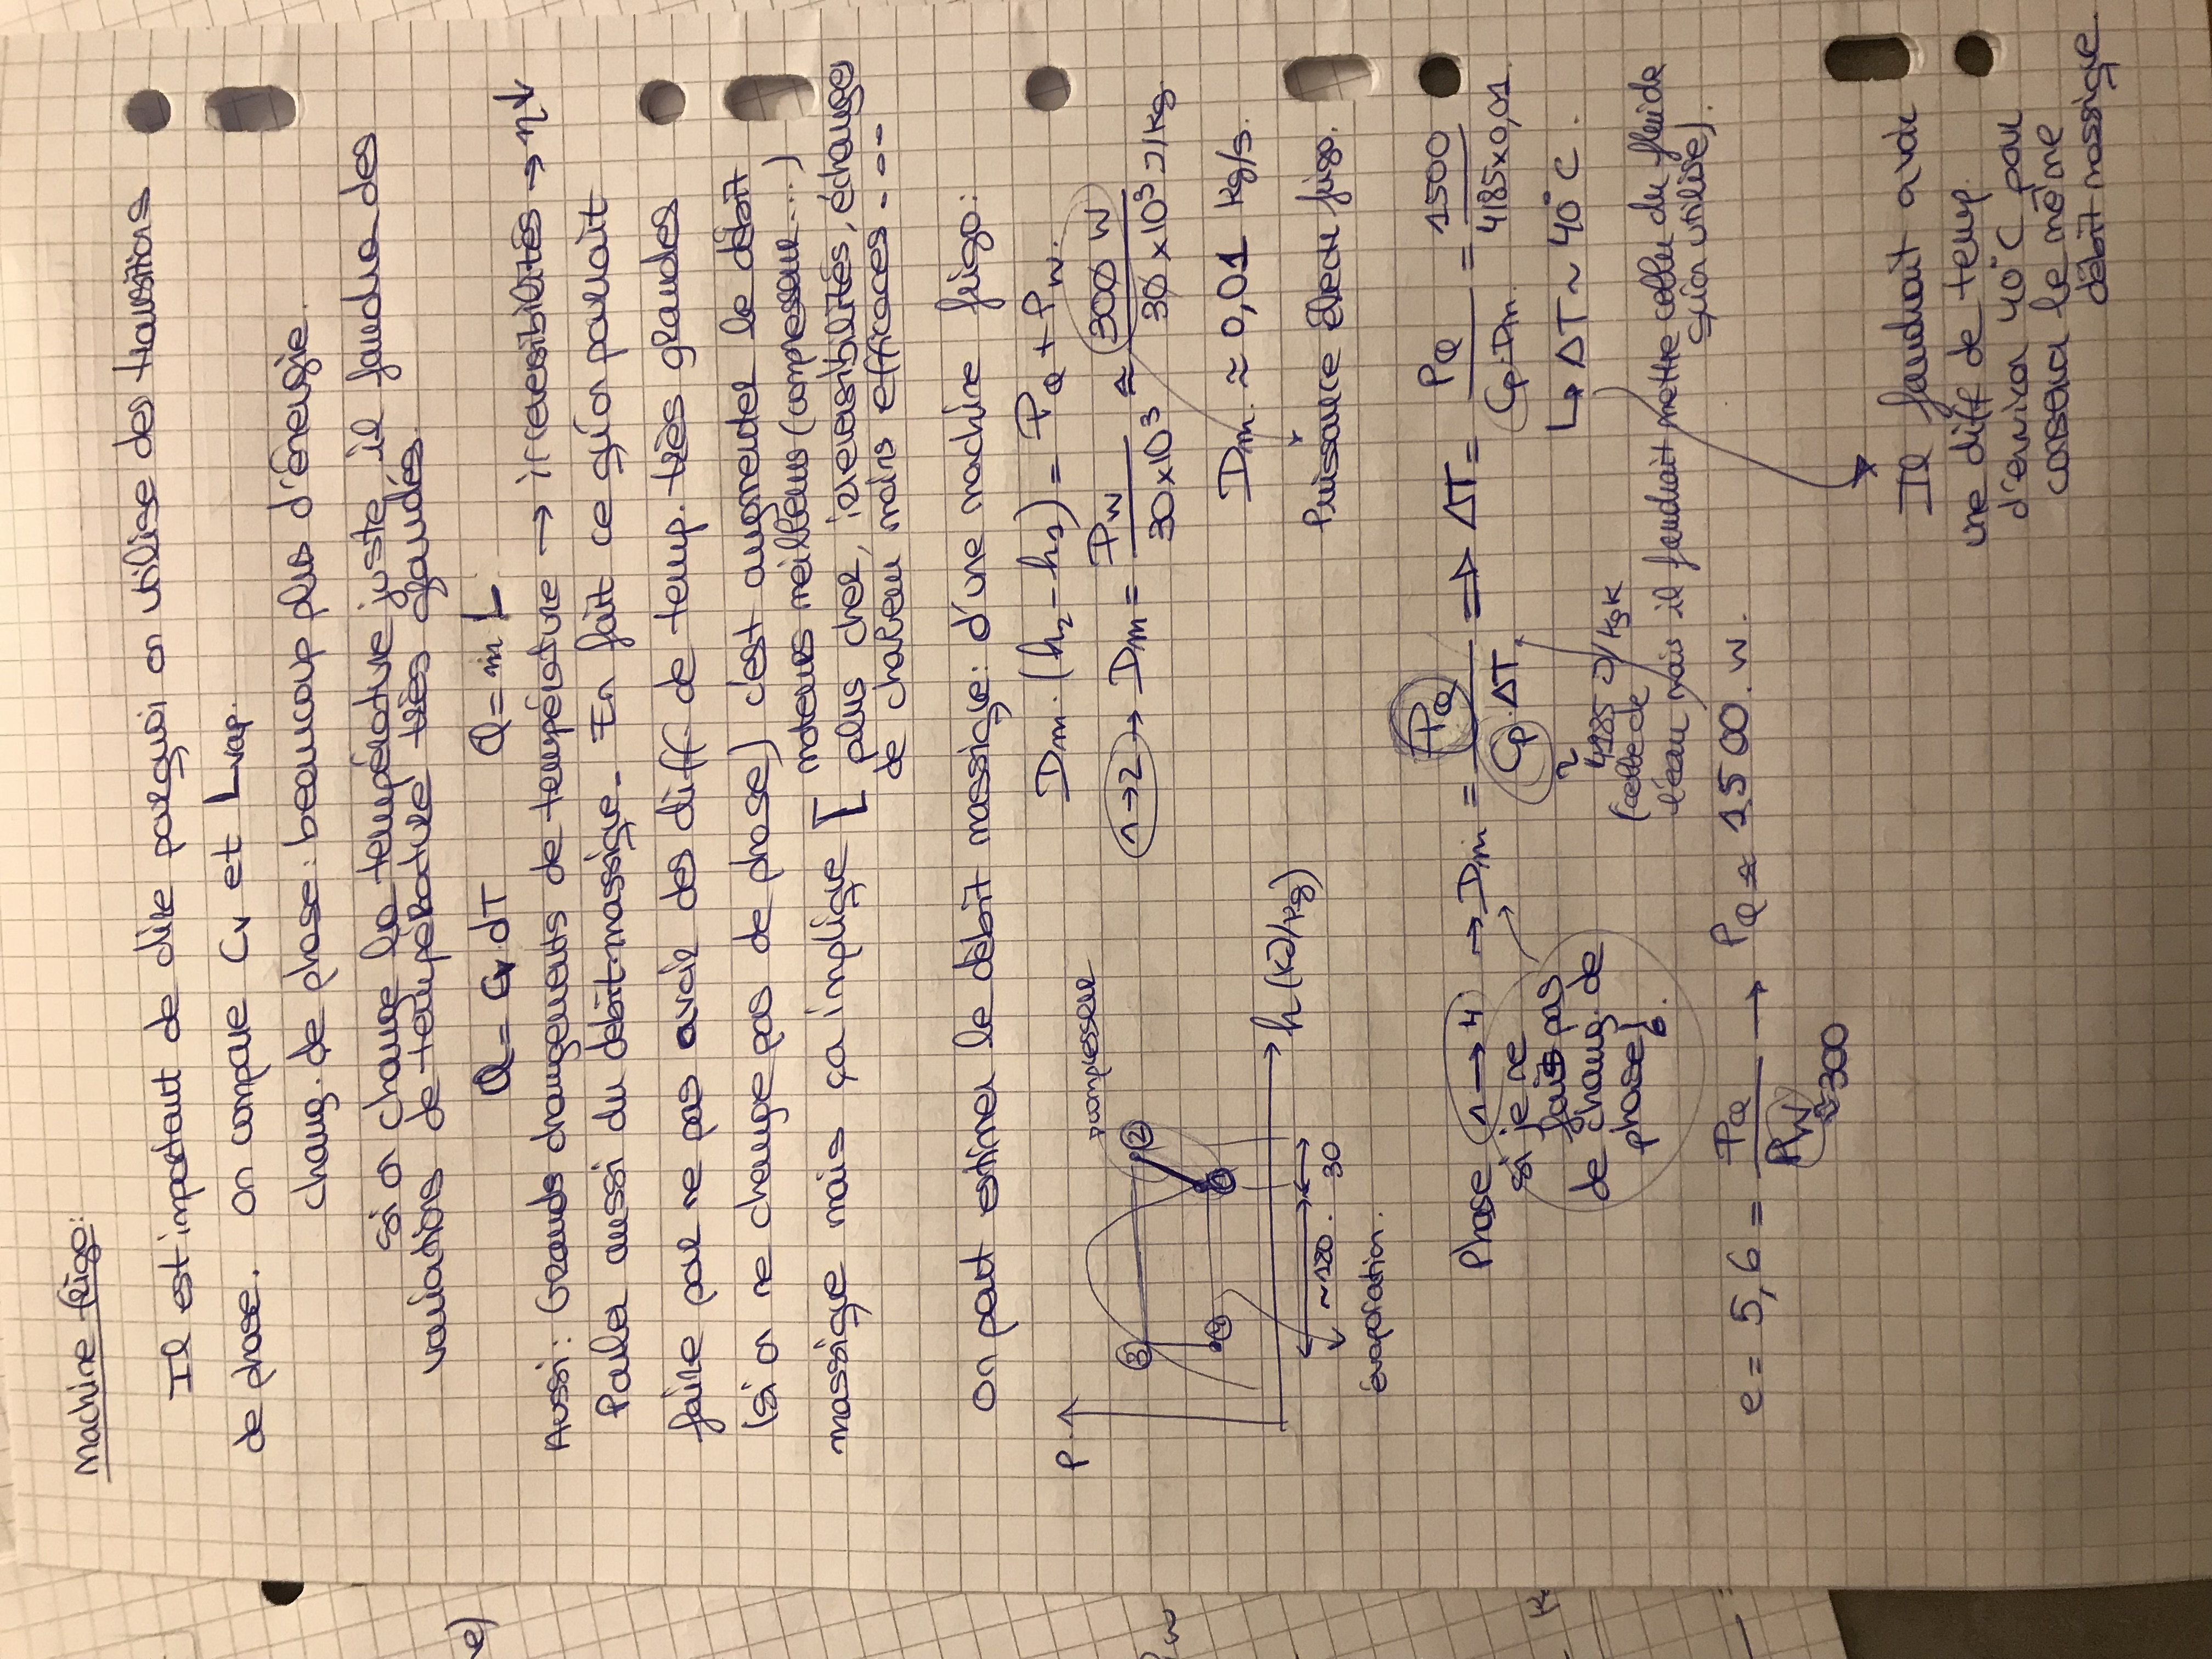 Machine frigo:
Il est important de dire pourquoi on utilise des transitions
de phase. On compare Cv et Lvap.
chang. de phase: beaucoup plus d'énergie.
si on change la température juste, il faudra des
variations de température très grandes.
Q = Cv dT Q = m L
Aussi: Grands changements de température → irreversibilités → η↓
Parler aussi du debit massique. En fait ce qu'on pourrait
faire pour ne pas avoir des diff. de temp. très grandes
(si on ne change pas de phase) c'est augmenter le débit
massique mais ça implique [ moteurs meilleurs (compresseur...)
plus cher, irreversibilités, échanges
de chaleur moins efficaces ---
On peut estimer le débit massique: d'une machine frigo:
Dm. (h2-h1) = PQ + PW.
P compresseur
③ ②
1→2 → Dm = PW / 30x10³ ≈ 300 W / 30 x10³ J/kg
④ ①
Dm ≈ 0,01 kg/s.
h (kJ/kg)
~120. 30
Puissance élect frigo.
évaporation.
Phase 1→4 → Dm = PQ / Cp.ΔT ⇒ ΔT = PQ / Cp.Dm = 1500 / 4185x0,01.
si je ne
fais pas
de chang. de
phase!
↳ ΔT ~ 40°C.
4185 J/kgK
(celle de
l'eau mais il faudrait mettre celle du fluide
qu'on utilise).
e = 5,6 = PQ / PW → PQ ≈ 1500. W.
≈300
Il faudrait avoir
une diff de temp.
d'environ 40°C pour
conserver le même
débit massique.
e)